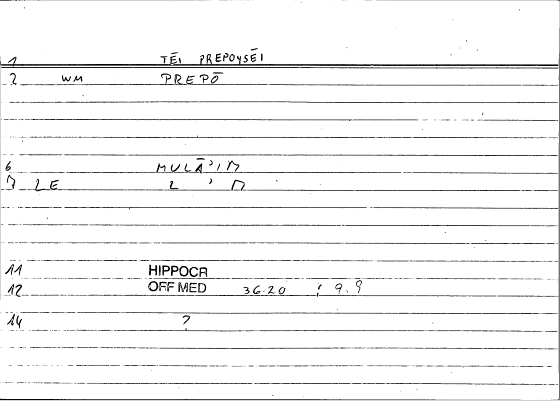 1 TĒI PREPOYSĒI
2 WM PREPŌ
6 MULĀ'IM
7 LE L ' M
11 HIPPOCR
12 OFF MED 36.20 ; 9.9
14 ?